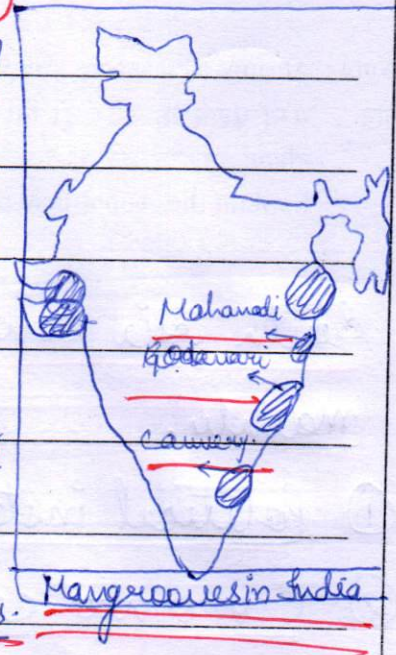 Mahanadi
Godavari
Cauvery.
Mangrooves in India